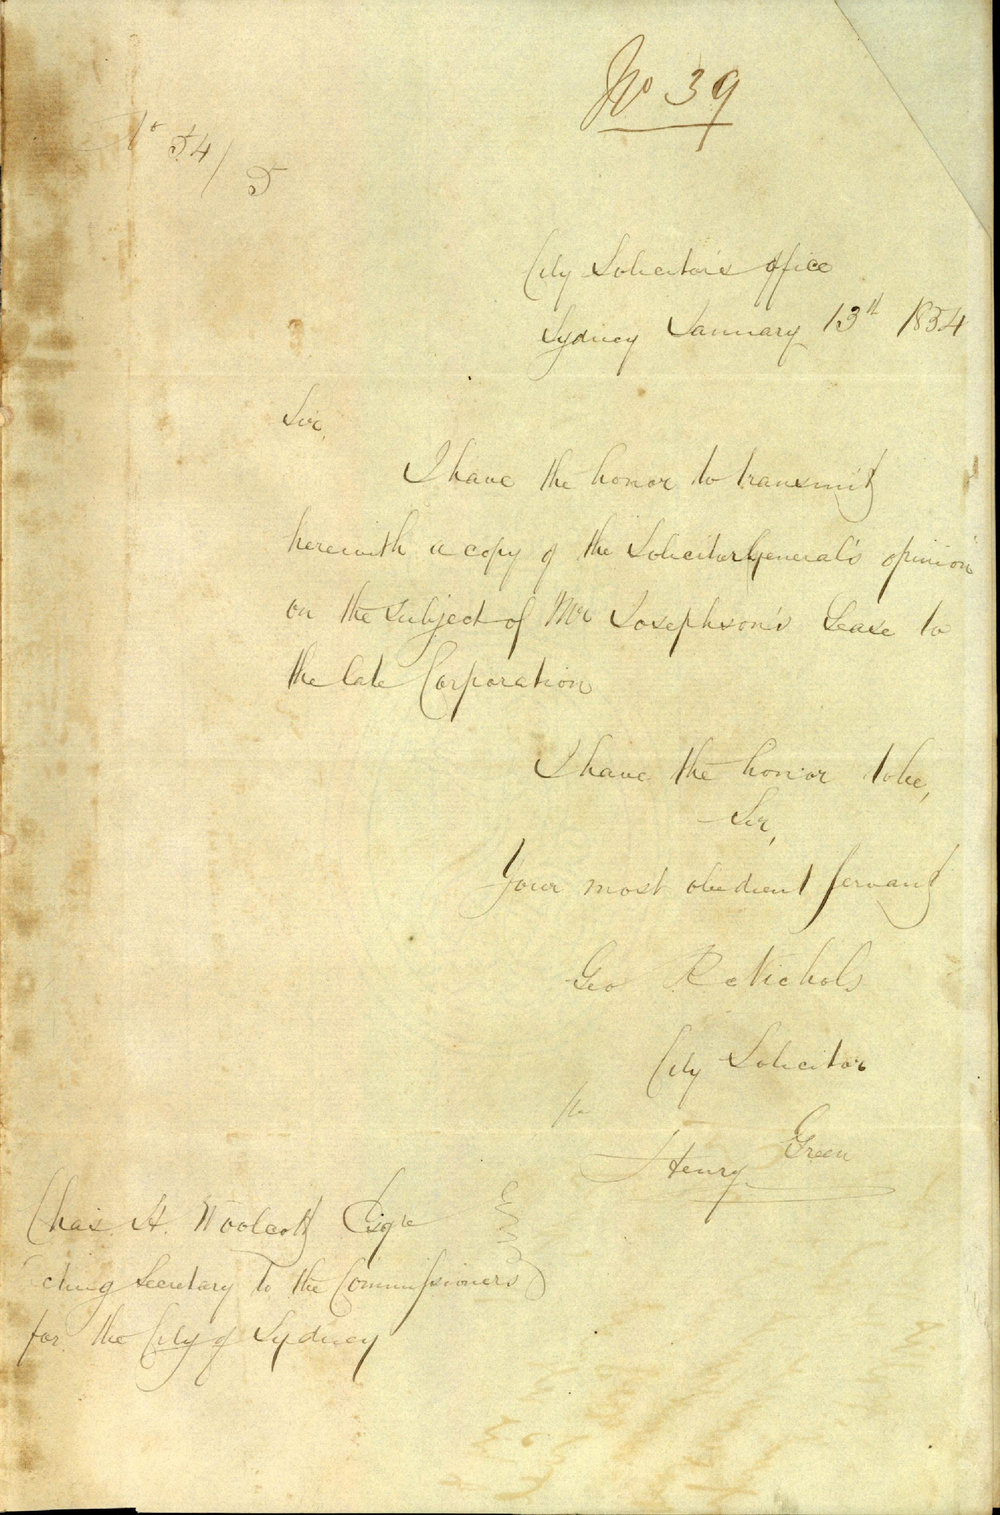 No 39
No 54/5
City Solicitor's office
Sydney January 13th 1854
Sir,
I have the honor to transmit
herewith a copy of the Solicitor General's opinion
on the subject of Mr Josephson's Lease to
the late Corporation
I have the honor to be,
Sir,
Your most obedient servant
Geo R Nichols
City Solicitor
pr
Henry Green
Chas. H. Woolcott Esqre
Acting Secretary to the Commissioners
for the City of Sydney